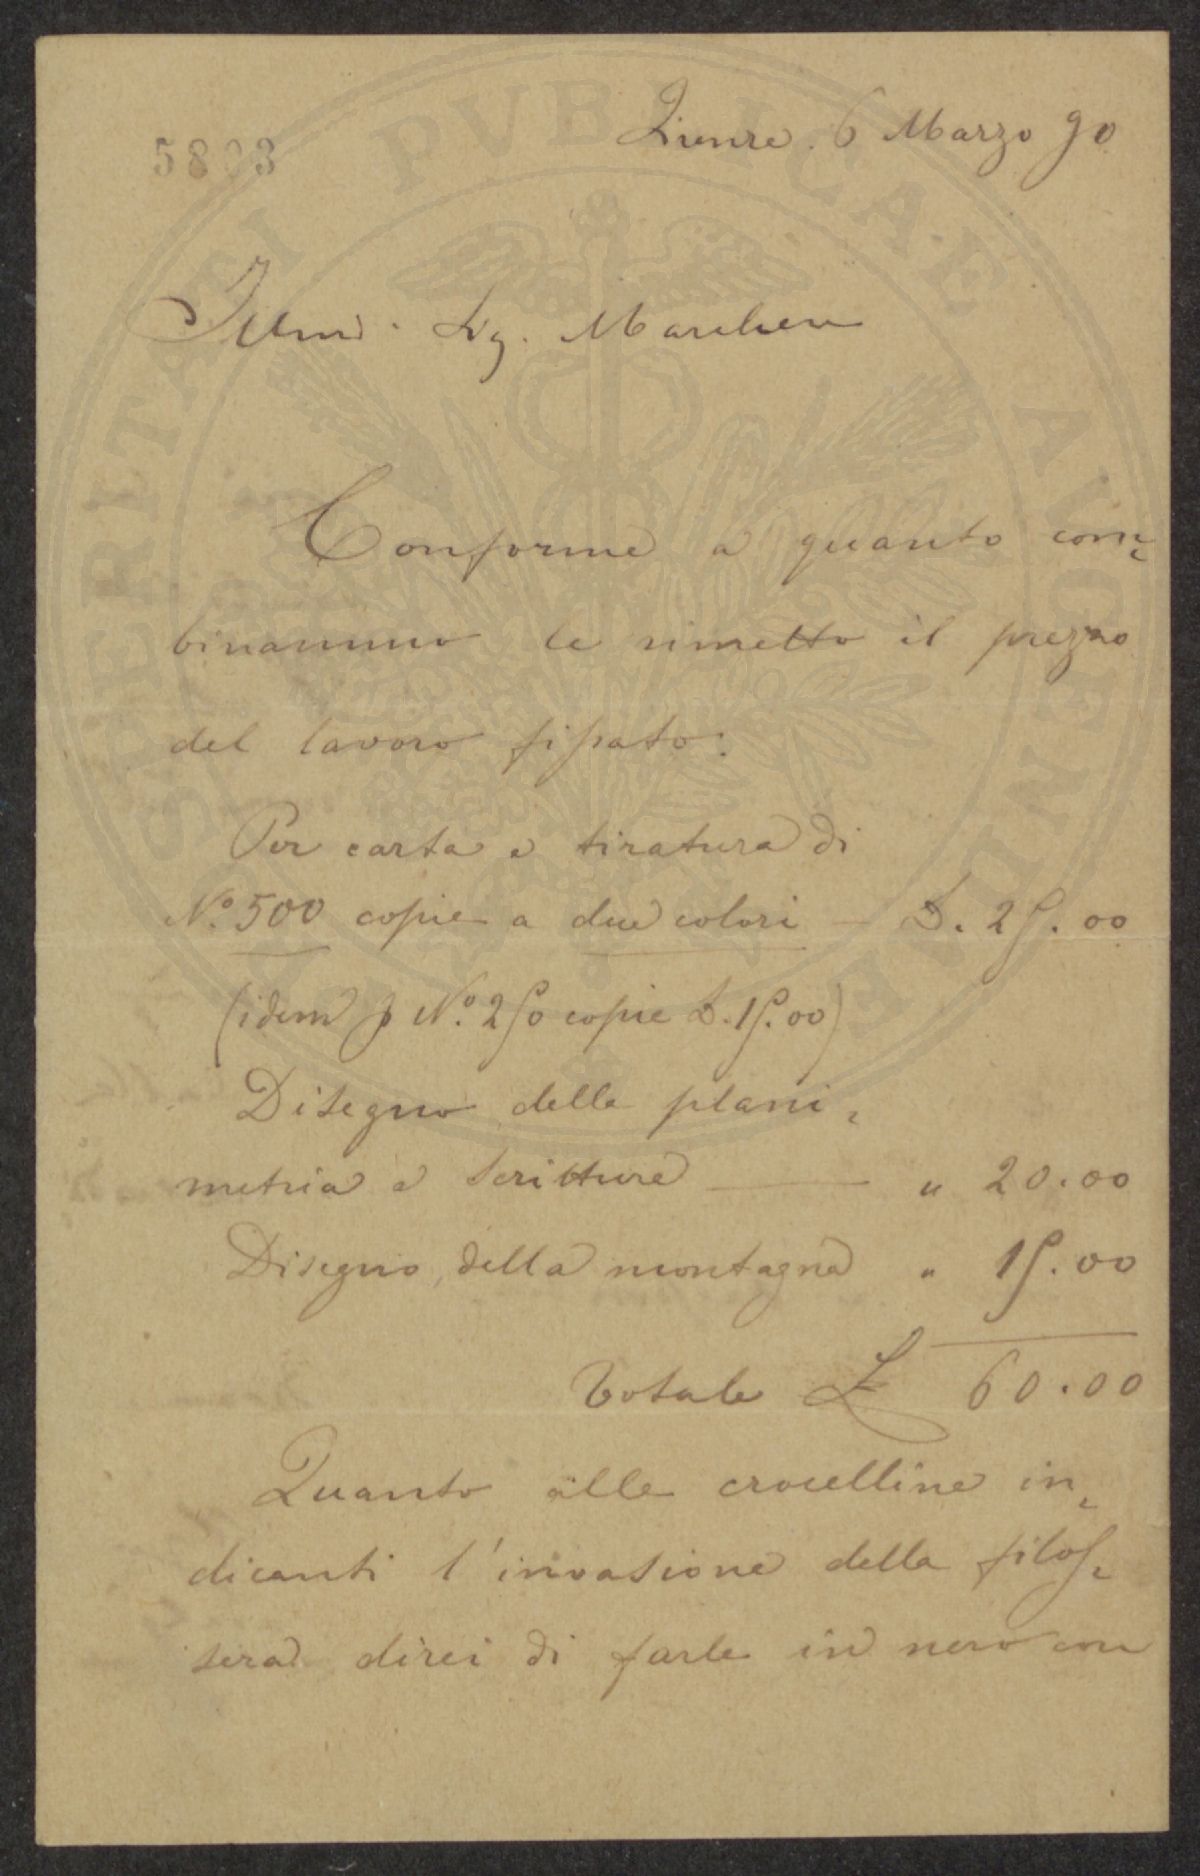 5803
Firenze. 6 Marzo 90
Illmo. Sig. Marchese
Conforme a quanto com-
binammo le rimetto il prezzo
del lavoro fissato:
Per carta e tiratura di
N.° 500 copie a due colori — L. 25.00
(idem p N.° 250 copie L. 15.00)
Disegno della plani-
metria e scritture — " 20.00
Disegno della montagna " 15.00
Totale L 60.00
Quanto alle crocelline in-
dicanti l'invasione della filos-
sera direi di farle in nero con
PROSPERITATI PVBLICAE AVGENDAE